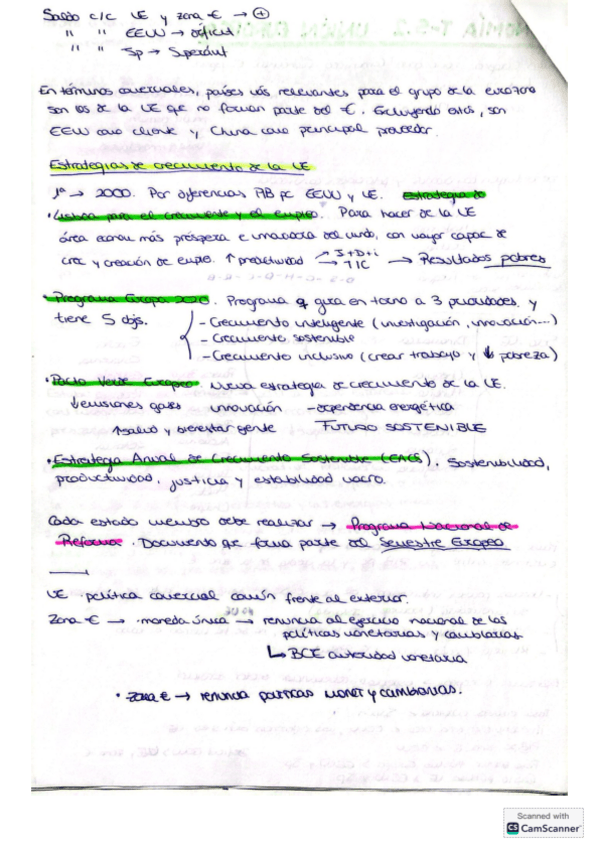 Saldo c/c UE y zona € → (+)
" " EEUU → déficit
" " Jp → Superávit
En términos comerciales, países más relevantes para el grupo de la eurozona
son los de la UE que no forman parte del €. Excluyendo estos, son
EEUU como cliente y China como principal proveedor.
Estrategias de crecimiento de la UE
1ª → 2000. Por diferencias PIB pc EEUU y UE. Estrategia de
· Lisboa para el crecimiento y el empleo. Para hacer de la UE
área econom más próspera e innovadora del mundo, con mayor capac de
crec y creación de empleo. ↑ productividad → I+D+i → TIC → Resultados pobres
· Programa Europa 2020. Programa q gira en torno a 3 prioridades y
tiene 5 objs.
- Crecimiento inteligente (investigación, innovación...)
- Crecimiento sostenible
- Crecimiento inclusivo (crear trabajo y ↓ pobreza)
· Pacto Verde Europeo. Nueva estrategia de crecimiento de la UE.
↓ emisiones gases innovación - dependencia energética
↑ salud y bienestar gente FUTURO SOSTENIBLE
· Estrategia Anual de Crecimiento Sostenible (EACS). Sostenibilidad,
productividad, justicia y estabilidad macro.
Cada estado miembro debe realizar → Programa Nacional de
Reforma. Documento que forma parte del Semestre Europeo
UE · política comercial común frente al exterior.
Zona € → · moneda única → renuncia al ejercicio nacional de las
políticas monetarias y cambiarias
↳ BCE autoridad monetaria
· Zona € → renuncia políticas monet y cambiarias.
Scanned with
CS CamScanner